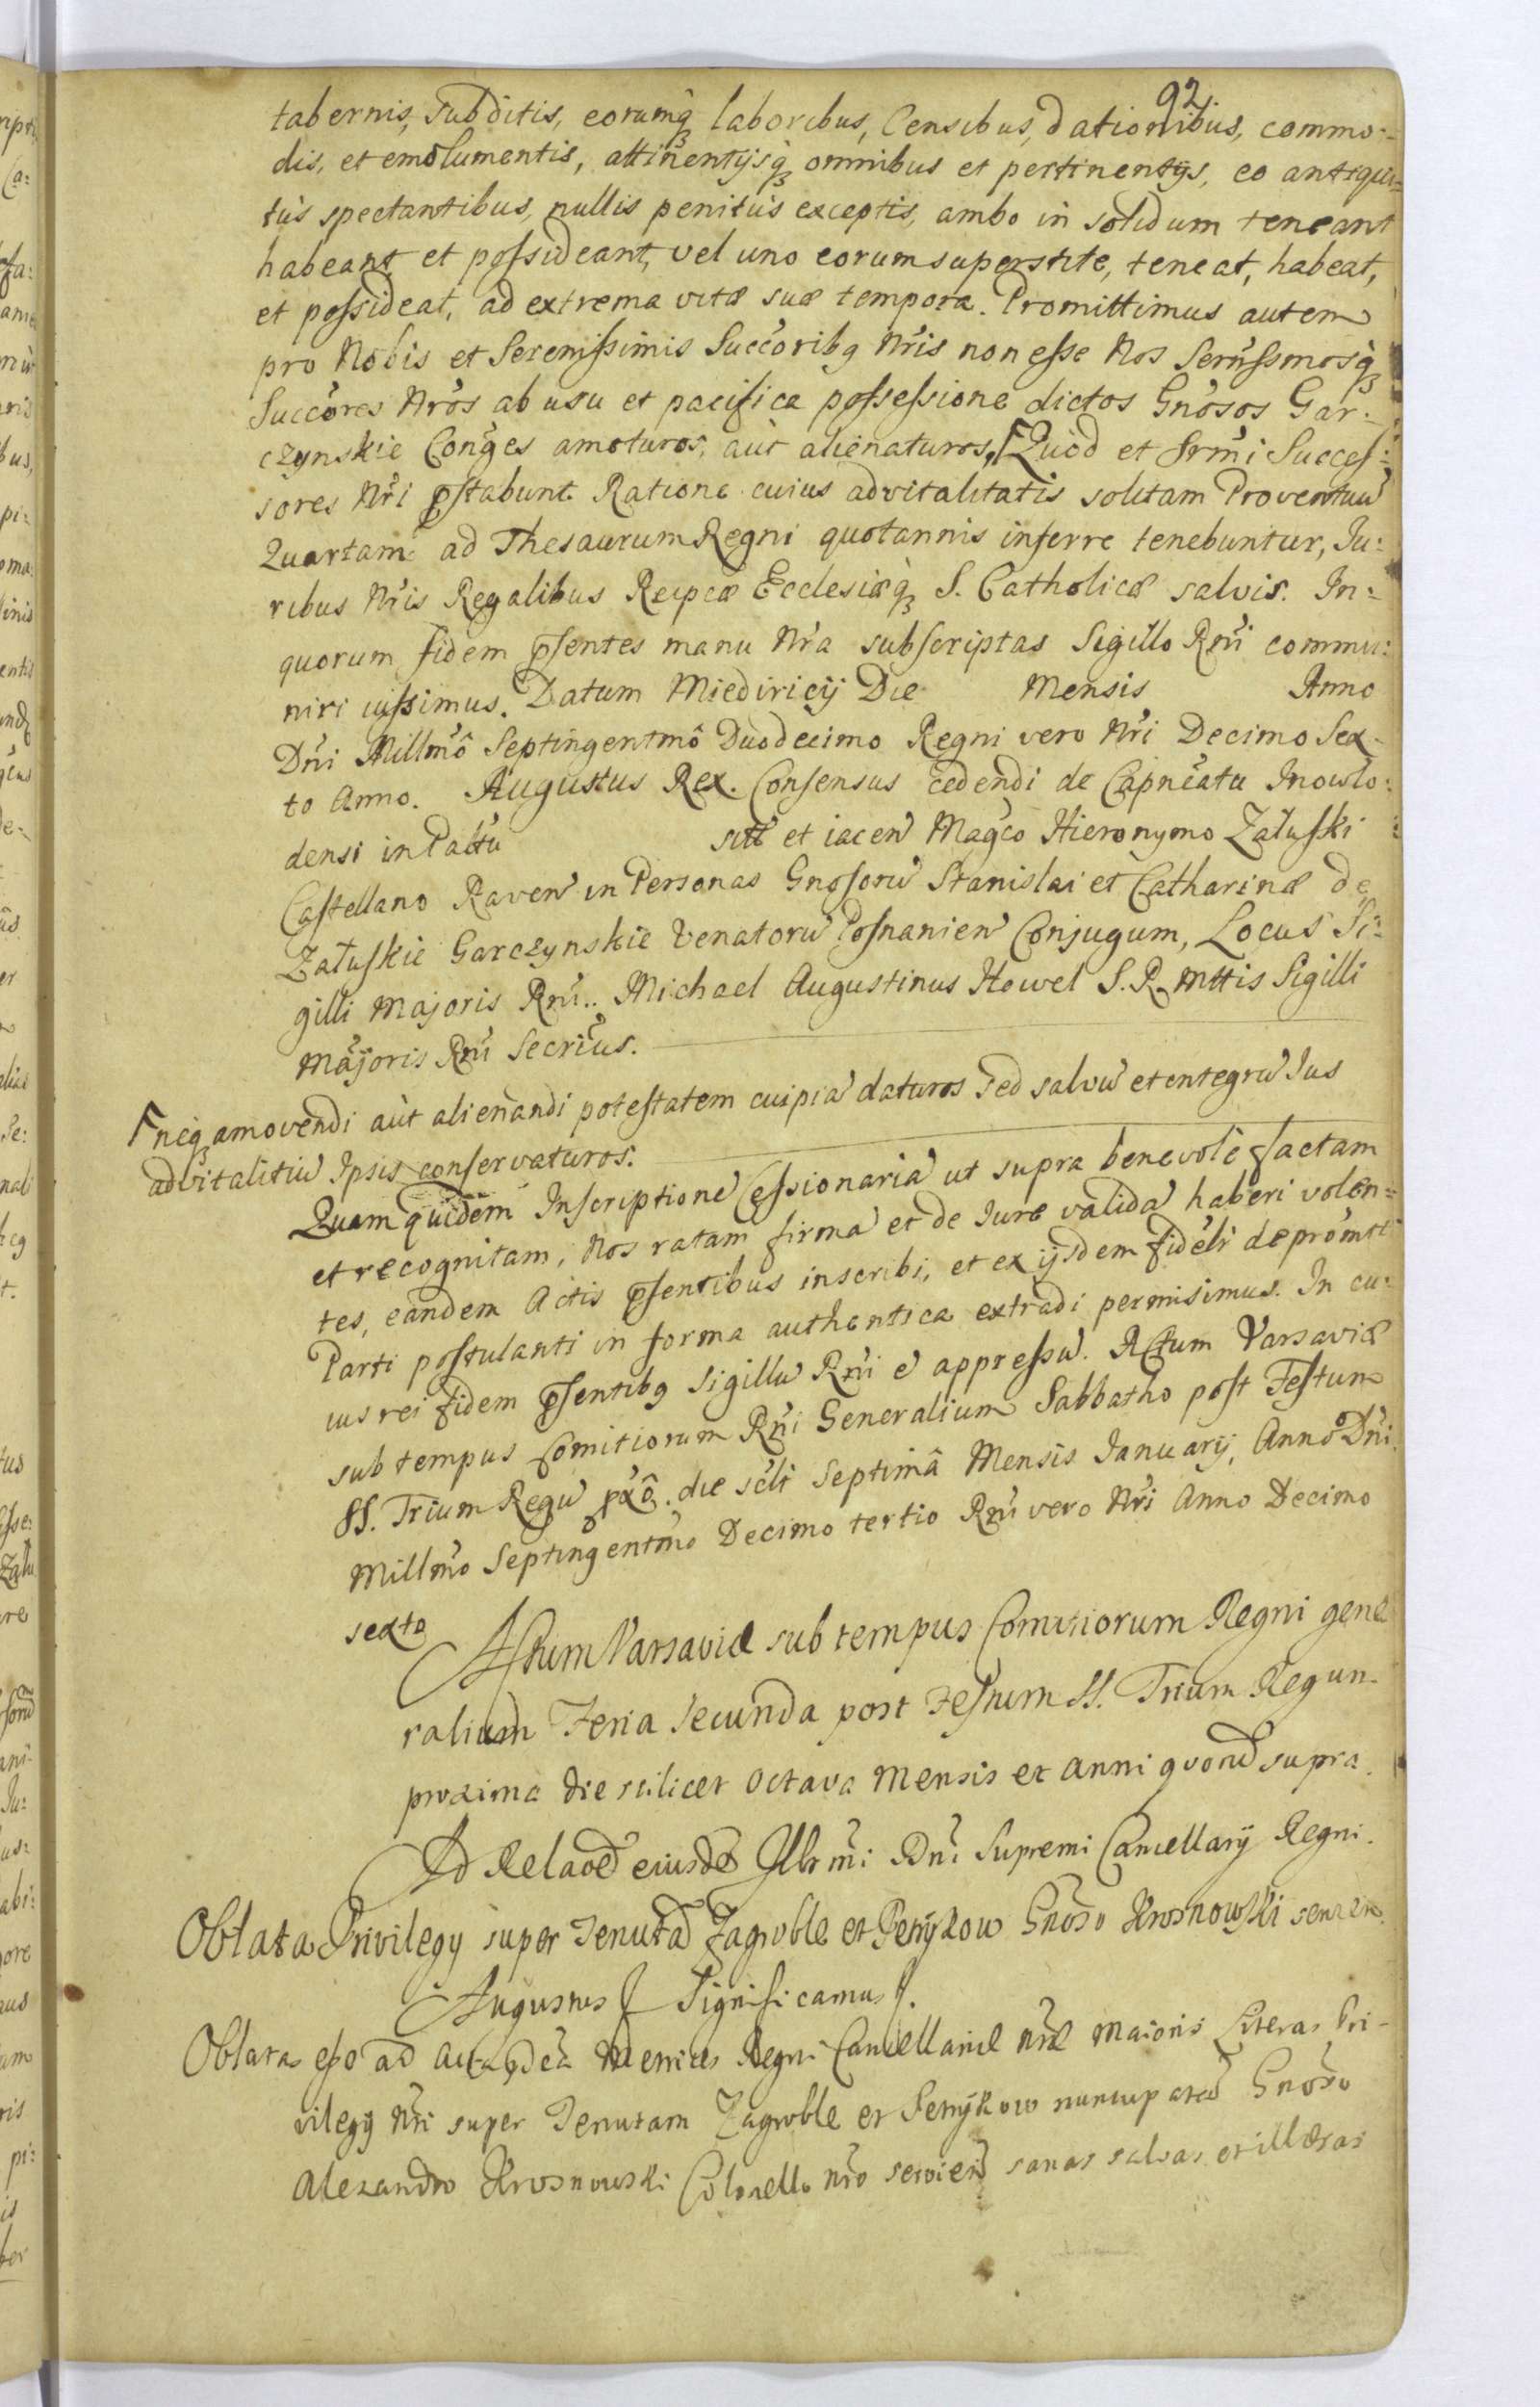 92
tabernis, subditis, eorumq̃ laboribus, Censibus, dationibus, commo-
dis, et emolumentis, attinentijsq̃ omnibus et pertinentijs, eo antiqui-
tùs spectantibus, nullis penitùs exceptis, ambo in solidum teneant
habeant et possideant, vel uno eorum superstite, teneat, habeat,
et possideat, ad extrema vitæ suæ tempora. Promittimus autem
pro Nobis et Serenissimis Succ̃oribg Nr̃is non esse Nos Serñssmosq̃
Succ̃ores Nr̃os ab usu et pacifica possessione dictos Gnõsos Gar-
czynskie Cong̃es amoturos, aùt alienaturos, Γ Quod et Srm̃i Succes:
sores Nr̃i p̃stabunt. Ratione cuius advitalitatis solitam Proventuũ
Quartam ad Thesaurum Regni quotannis inferre tenebuntur, Ju:
ribus Nr̃is Regalibus Reipcæ Ecclesiæq̃ S. Catholicæ salvis. In:
quorum fidem p̃sentes manu Nr̃a subscriptas Sigillo Rñi commu:
niri iussimus. Datum Miedziricij Die Mensis Anno
Dñi Millm̃ô Septingentmô Duodecimo Regni vero Nr̃i Decimo Sex-
to Anno. Augustus Rex. Consensus cedendi de Capñeatu Inowlo:
densi in Paltũ sitẽ et iaceñ Magc̃o Hieronymo Załuski
Castellano Raveñ in Personas Gnosorũ Stanislai et Catharinæ de
Załuskie Garczynskie Venatorũ Posnanieñ Conjugum, Locus Si:
gilli Majoris Rñi.. Michael Augustinus Howel S. R. Mttis Sigilli
Majoris Rñi Secriũs.
Γ neq̃ amovendi aùt alienandi potestatem cuipiã daturos sed salvũ et integrũ Jus
advitalitiũ Ipsis conservaturos.
Quam quidem Inscriptionẽ Cessionariã ut supra benevolè factam
et recognitam, Nos ratam firmã et de Jure validã haberi volen-
tes, eandem Actis p̃sentibus inscribi, et ex ijsdem fideli depromti
Parti postulanti in forma authentica extradi permisimus. In cu:
ius rei fidem p̃sentibg Sigillũ Rñi ẽ appressũ. Actum Varsaviæ
sub tempus Comitiorum Rñi Generalium Sabbatho post Festum
SS. Trium Regũ pxô. die sc̃lt Septimâ Mensis Januarij, Anno Dñi
Millm̃o Septingentm̃o Decimo tertio Rñi vero Nr̃i Anno Decimo
sexto
Actum Varsaviæ sub tempus Comitiorum Regni gene
ralium Feria Secunda post Festum SS. Trium Regum
proxima die scilicet Octava Mensis et Anni quorũ supra.
Ad Relaoẽ eiusdẽ Illr̃mi Dñi Supremi Cancellarij Regni.
Oblata Privilegij super Tenutã Zagroble et Petrykow Gnõso Krosnowski
Augustus Significamus
Oblatas esse ad Acta Metrices Regni Cancellariæ Nr̃æ Maioris Literas Pri-
vilegij Nr̃i super Tenutam Zagroble et Petrykow nuncupatã Gnõso
Alexandro Krosnowski Colonello Nr̃o servieñ sanas salvas et illæsas